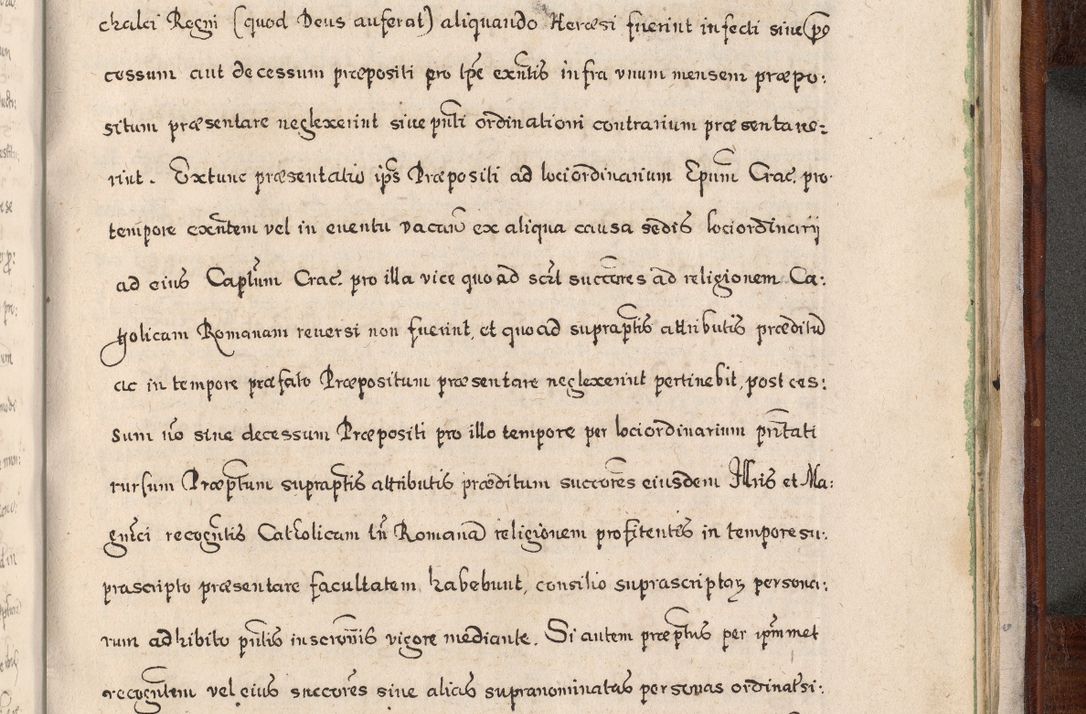 chalci Regni (quod Deus auferat) aliquando Heræsi fuerint infecti siue pro
cessum aut decessum præpositi pro tp̃e exñtis infra vnum mensem præpo:
situm præsentare neglexerint siue pñti ordinationi contrarium præsentaue:
rint. Extunc præsentatio ip̃s Præpositi ad lociordinarium Ep̃um Crac. pro
tempore exñtem vel in euentu vacaũ ex aliqua causa sedis lociordinarij
ad eius Capt̃lum Crac. pro illa vice quoad sc̃rl succ̃ores ad religionem Ca:
tholicam Romanam reuersi non fuerint, et quoad suprap̃tis attributis præditũ
ac in tempore præfato Præpositum præsentare neglexerint pertinebit, post ces:
sum ṽo siue decessum Præpositi pro illo tempore per lociordinarium pr̃ntati
rursum Præp̃tum suprap̃tis attributis præditum succ̃ores eiusdem Illris et Ma:
gñci recogñtis Catholicam tñ Romanã religionem profitentis in tempore su:
prascripto præsentare facultatem habebunt, consilio suprascriptoꝝ persona:
rum adhibito pñtis inscr̃onis vigore mediante. Si autem præp̃tus per ip̃mmet
recogñtem vel eius succ̃ores siue alias supranominatas personas ordinatsi: